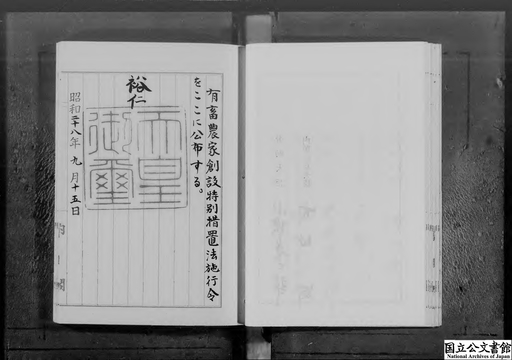 有畜農家創設特別措置法施行令
をここに公布する。
裕仁
天皇
御璽
昭和二十八年九月十五日
国立公文書館
National Archives of Japan